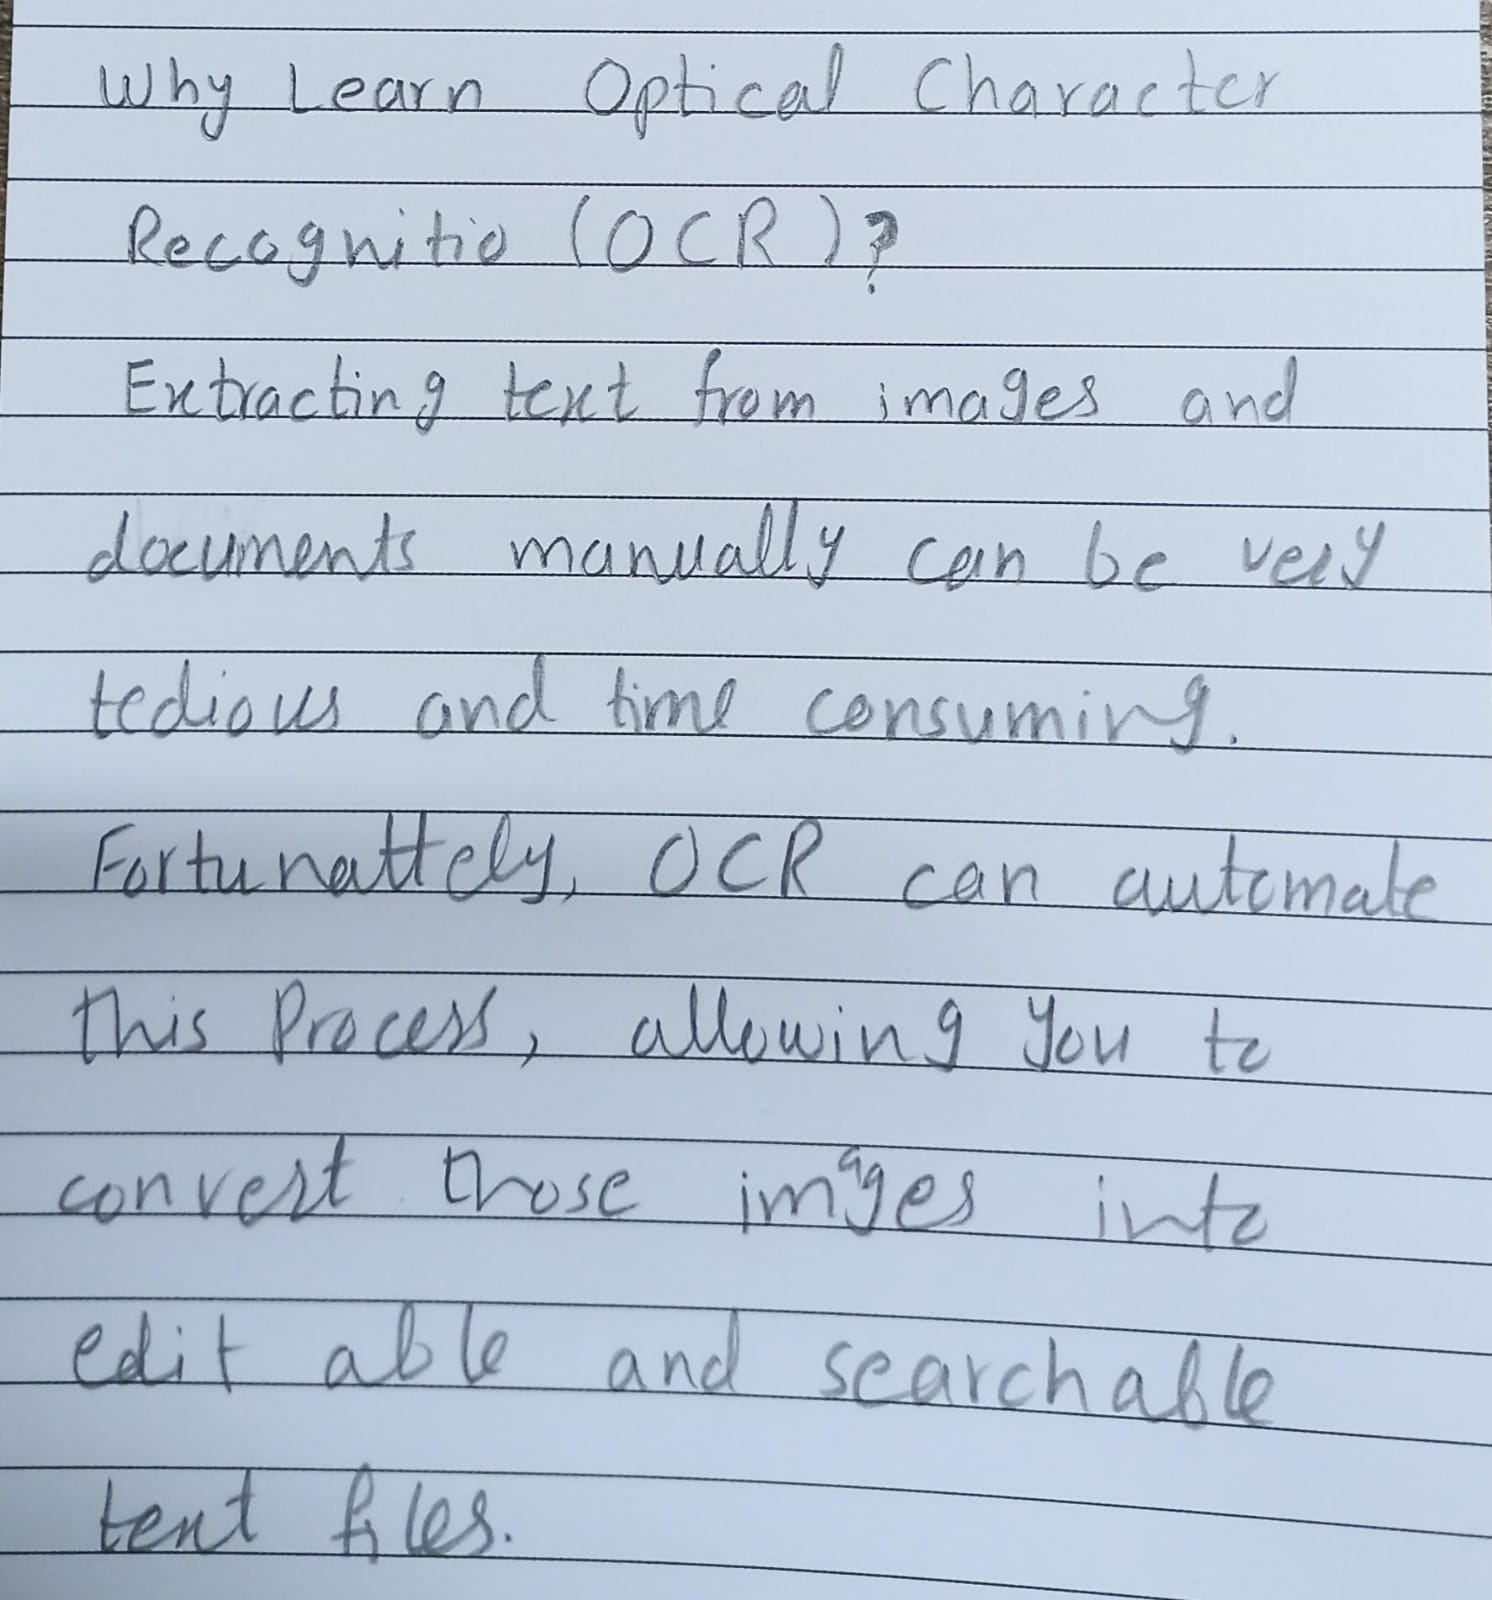 Why Learn Optical Character
Recognitio (OCR)?
Extracting text from images and
documents manually can be very
tedious and time consuming.
Fortunattely, OCR can automate
this Process, allowing you to
convert those images into
edit able and searchable
text files.